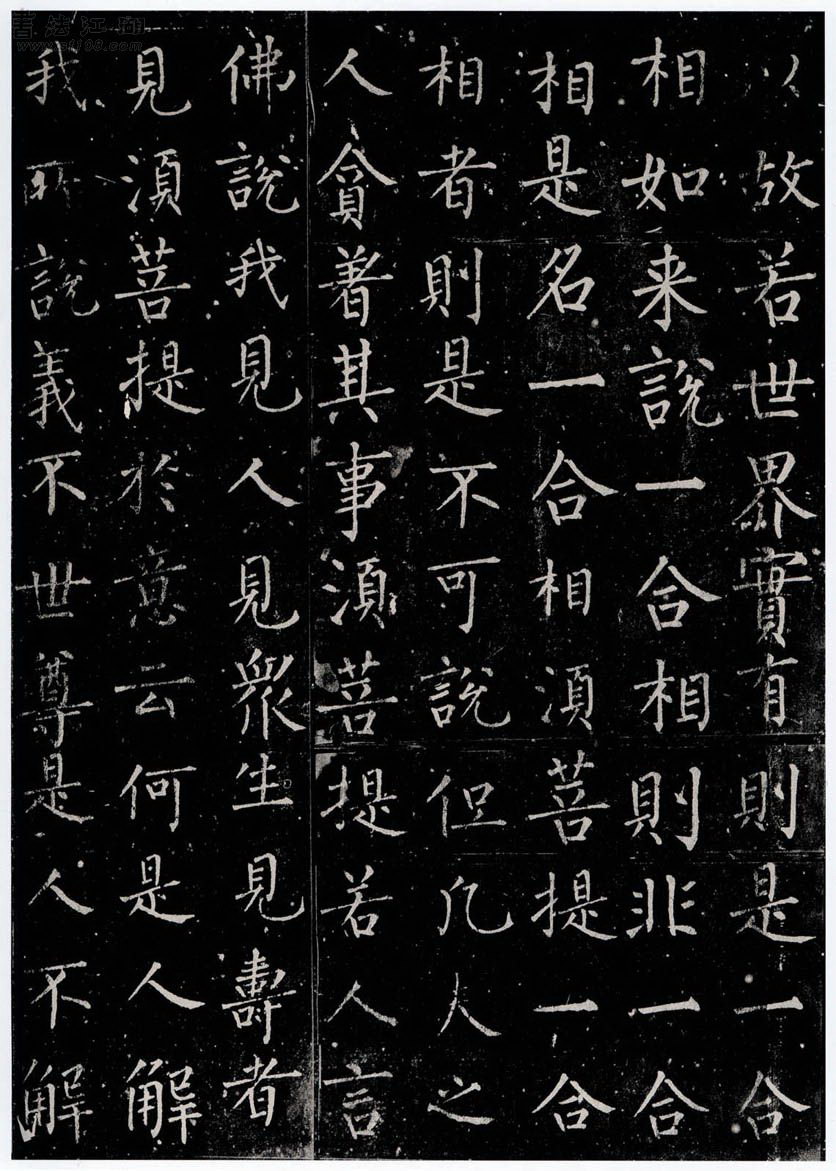 以故若世界實有則是一合
相如来說一合相則非一合
相是名一合相湏菩提一合
相者則是不可說但凡人之
人貪著其事湏菩提若人言
佛說我見人見眾生見壽者
見湏菩提於意云何是人解
我所說義不世尊是人不解
書法江湖